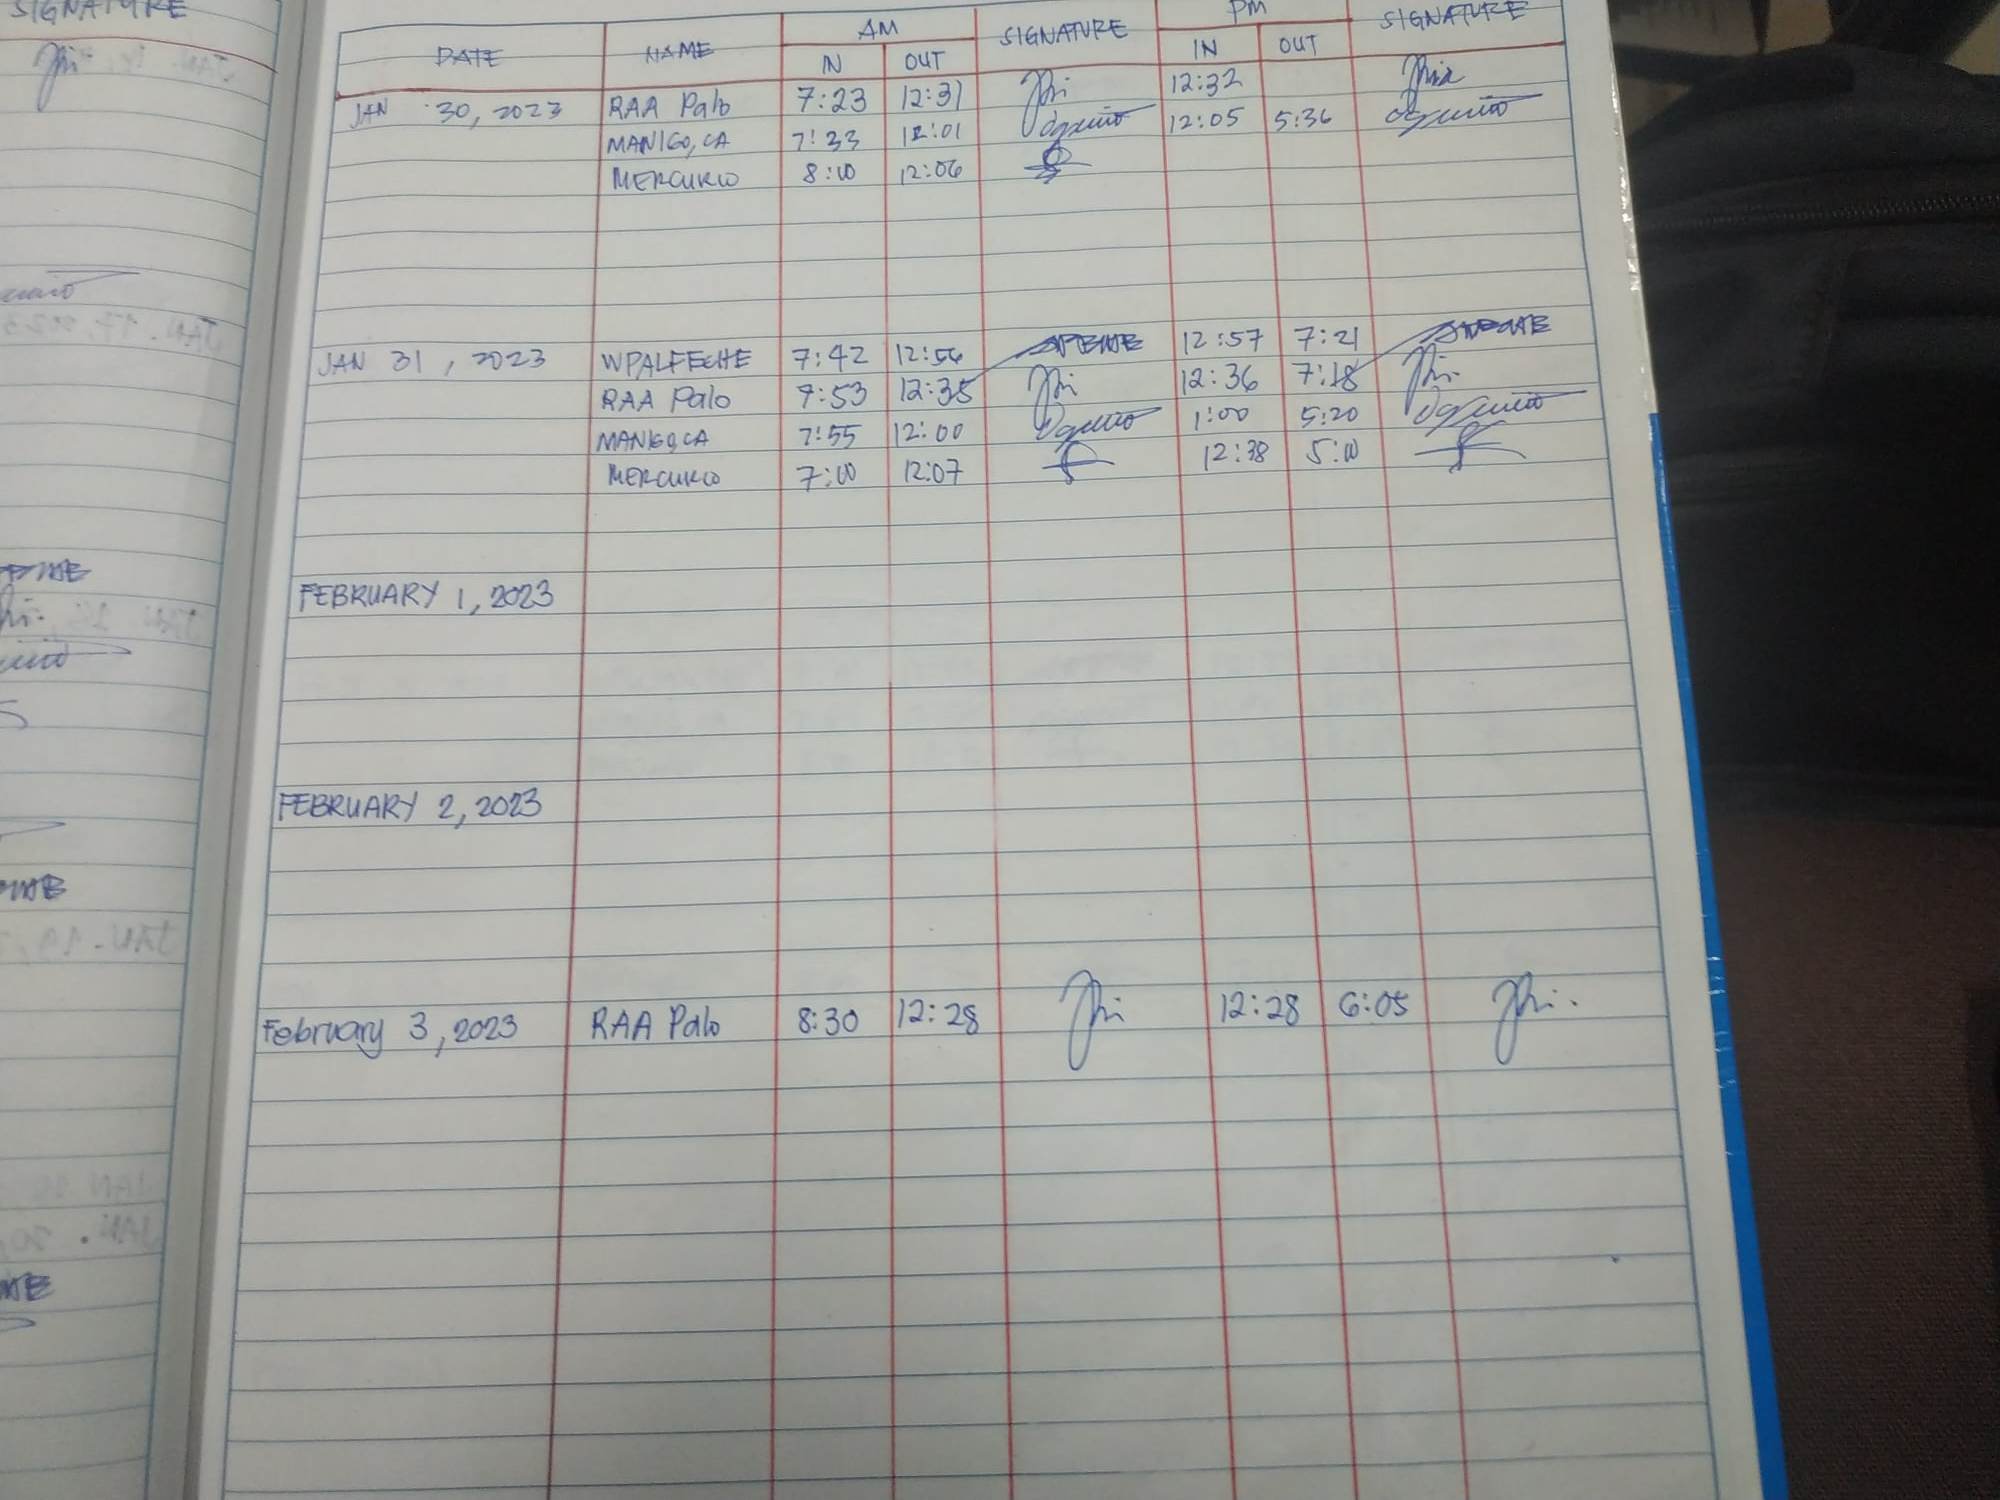 SIGNATURE
AM PM
DATE NAME IN OUT SIGNATURE IN OUT SIGNATURE
JAN 30, 2023 RAA Palo 7:23 12:31 12:32
MANIGO, CA 7:33 12:01 12:05 5:36
MERCURIO 8:00 12:06
JAN 31, 2023 WPALFECHE 7:42 12:56 12:57 7:21
RAA Palo 7:53 12:35 12:36 7:18
MANIGO, CA 7:55 12:00 1:00 5:20
MERCURIO 7:00 12:07 12:38 5:00
FEBRUARY 1, 2023
FEBRUARY 2, 2023
February 3, 2023 RAA Palo 8:30 12:28 12:28 6:05